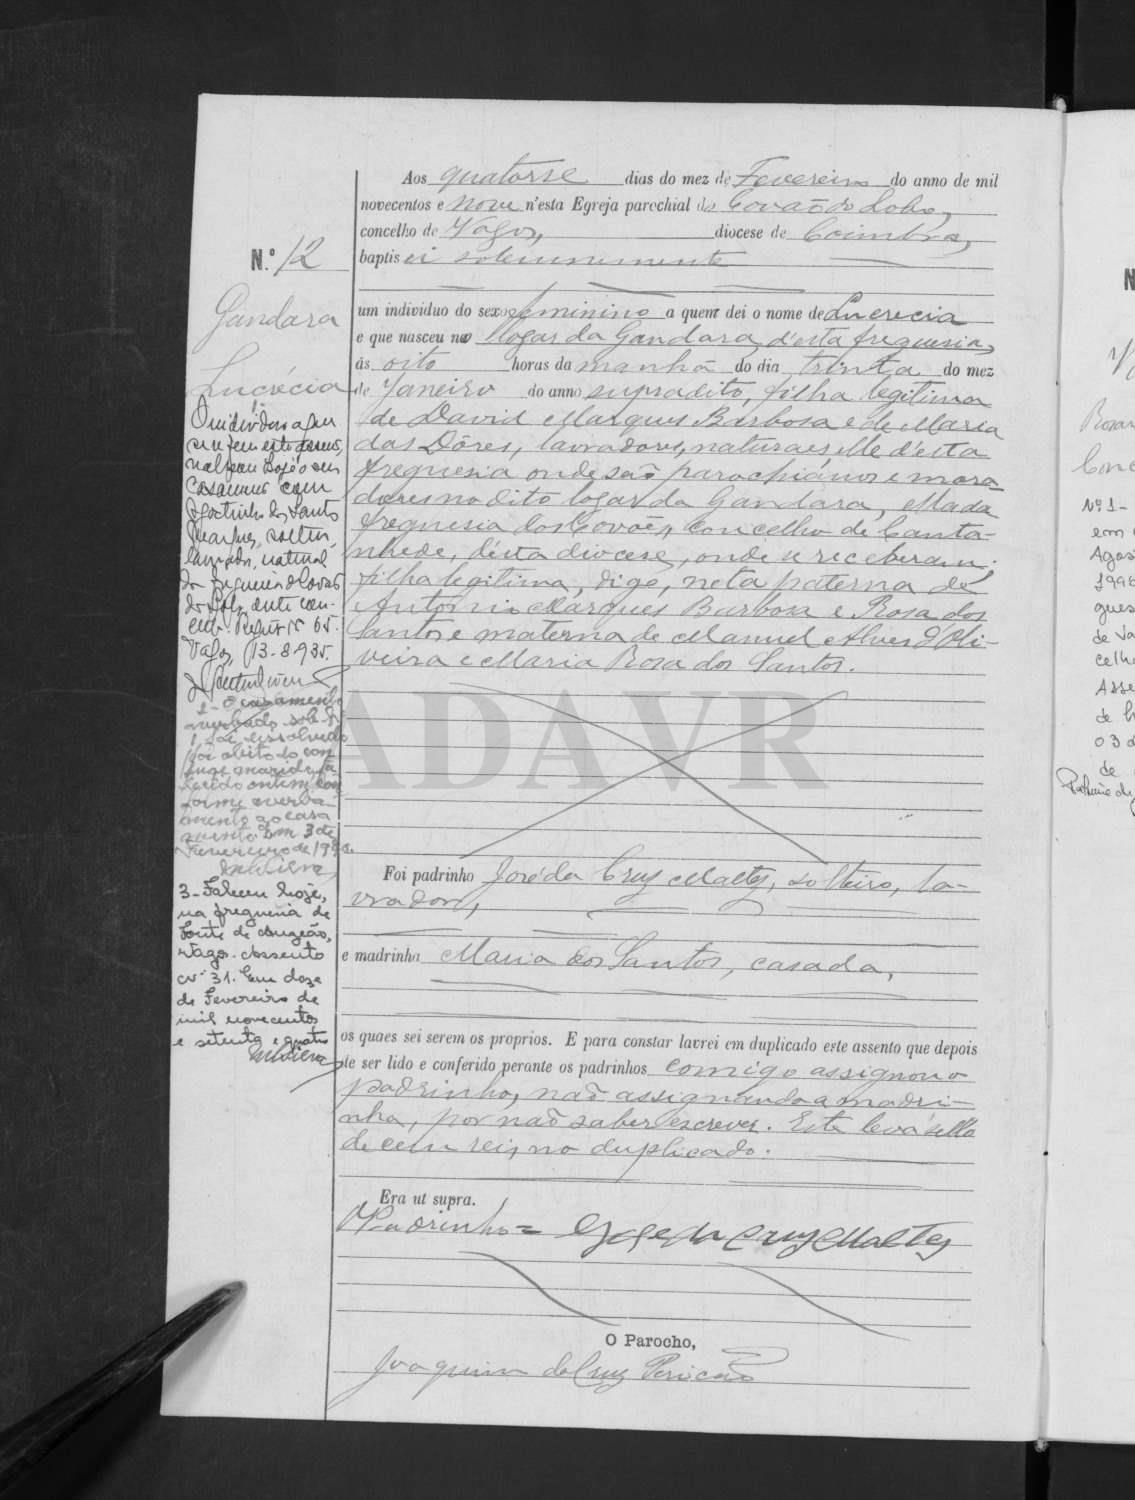 Aos quatorse dias do mez de Fevereiro do anno de mil
novecentos e nove n'esta Egreja parochial de Covão do Lobo,
concelho de Vagos, diocese de Coimbra,
N.º 12
baptisei solemnemente
um individuo do sexo feminino a quem dei o nome de Lucrecia
e que nasceu no logar da Gandara d'esta freguesia,
ás oito horas da manhã do dia trinta do mez
de Janeiro do anno supradito, filha legitima
de David Marques Barbosa e de Maria
das Dôres, lavradores, naturaes, elle d'esta
freguesia onde são parochianos e mora-
dores no dito logar da Gandara, ella da
freguesia dos Covões, concelho de Canta-
nhede, d'esta diocese, onde se receberam;
filha legitima, digo, neta paterna de
Antonio Marques Barbosa e Rosa dos
Santos e materna de Manuel Alves d'Oli-
veira e Maria Rosa dos Santos.
Foi padrinho José da Cruz Maltez, solteiro, la-
vrador,
e madrinha Maria dos Santos, casada,
os quaes sei serem os proprios. E para constar lavrei em duplicado este assento que depois
de ser lido e conferido perante os padrinhos comigo assignou o
padrinho, não assignando a madri-
nha, por não saber escrever. Este leva sello
de cem reis no duplicado.
Era ut supra.
O Padrinho = José da Cruz Maltez
O Parocho,
Joaquim da Cruz Pericão
Gandara
Lucrécia
1-
O individuo a quem
se refere este assento,
casamento com
Agostinho dos Santos
Marques, solteiro,
lavrador, natural
da freguesia de Covão
do Lobo, deste con-
celho. Registo nº 65.
Vagos, 13-8-935.
2- O casamento
averbado sob o nº
1 foi dissolvido
por obito do con-
juge marido, fa-
lecido ontem, con-
forme averba-
mento ao casa-
mento. Em 3 de
Fevereiro de
3- Faleceu hoje,
na freguesia de
Fonte de Angeão,
Vagos. Assento
nº 31. Em doze
de Fevereiro de
mil novecentos
e setenta e quatro
N
Nº 1-
em
Agos
de Va
celh
Asse
de
03 d
de